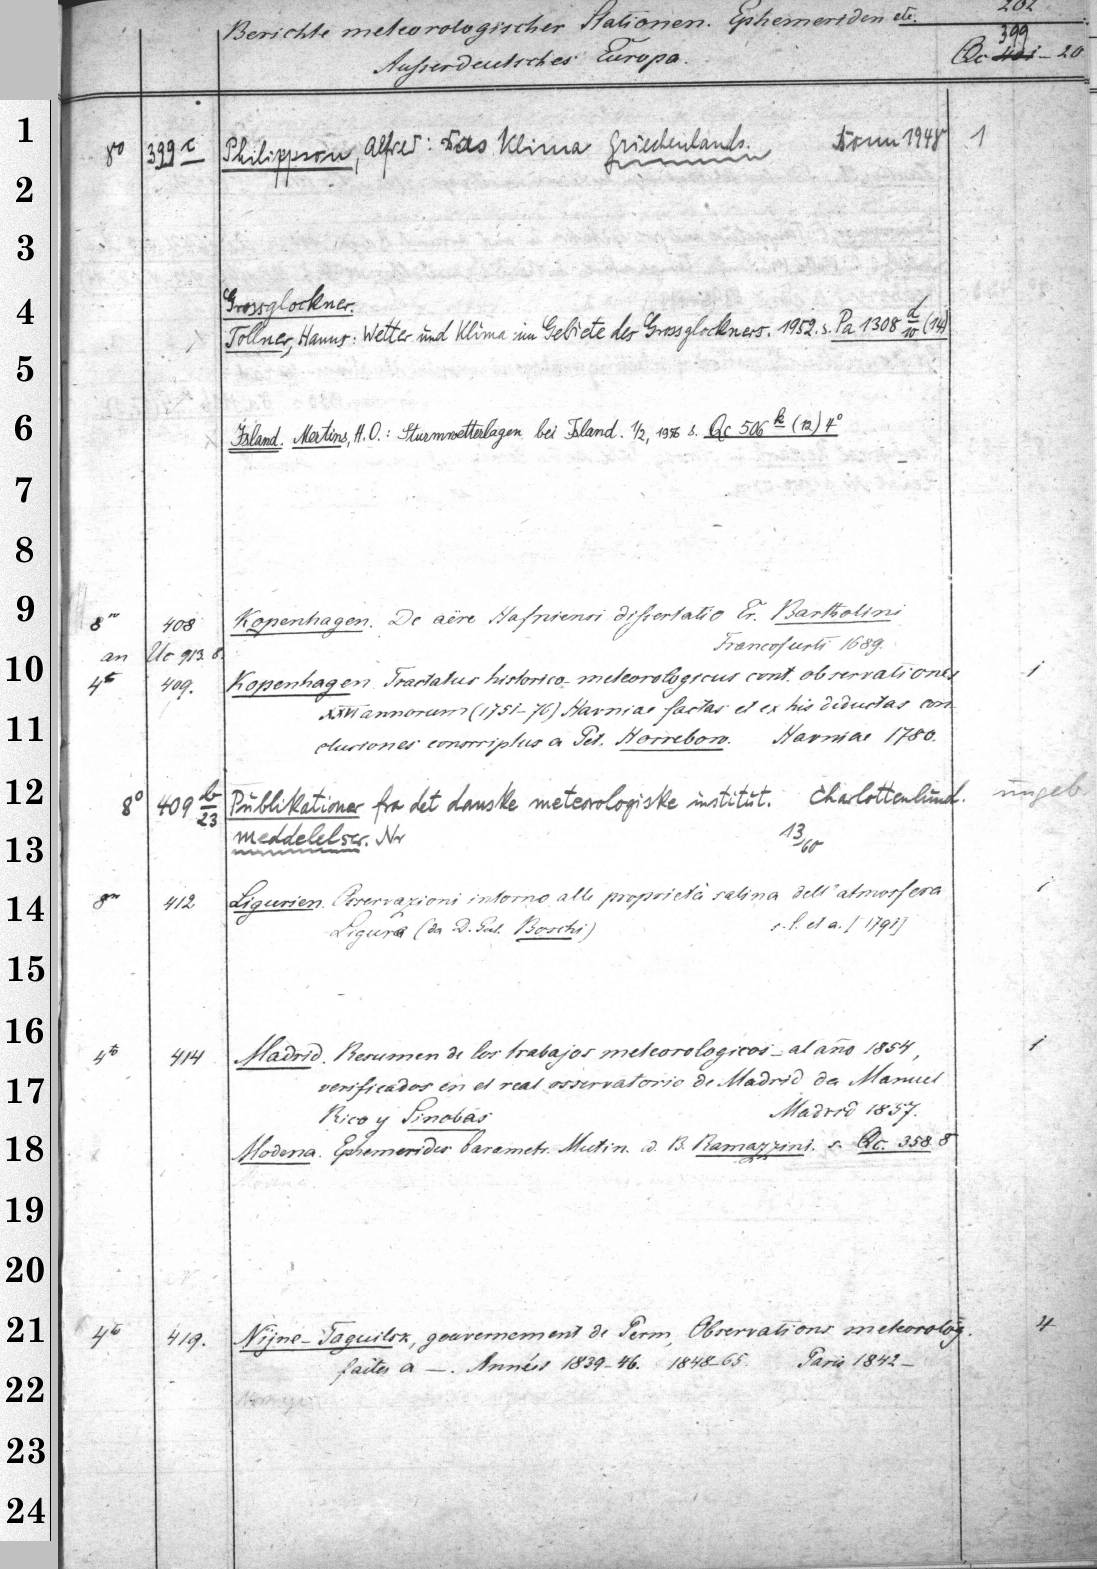 202
Berichte meteorologischer Stationen. Ephemeriden etc.
Außerdeutsches Europa.
399
Qc 401 – 20
1
8° 399 c Philippson, Alfred: Das Klima Griechenlands. Bonn 1948 1
2
3
Grossglockner.
4
Tollner, Hanns: Wetter und Klima im Gebiete des Grossglockners. 1952. s. Pa 1308 d/10 (14)
5
6
Island. Mertins, H. O.: Sturmwetterlagen bei Island. 1/2, 1956 s. Qc 506 k (12) 4°
7
8
9
8° 408 Kopenhagen. De aëre Hafniensi dissertatio Er. Bartholini
Francofurti 1689.
an Uc 913. 8.
10
4to 409. Kopenhagen Tractatus historico-meteorologicus cont. observationes 1
XXVI annorum (1751–76) Havniae factas et ex his diductas con-
11
clusiones conscriptus a Pet. Horrebow. Havniae 1780.
12
8° 409 b/23 Publikationer fra det danske meteorologiske institut. Charlottenlund. ungeb.
13
meddelelser. Nr 13/60
14
8° 412 Ligurien. Osservazioni intorno alla proprietà salina dell'atmosfera 1
Ligura (da D. Gul. Boschi) s. l. et a. [1791]
15
16
4to 414 Madrid. Resumen de los trabajos meteorologicos – al año 1854, 1
17
verificados en el real osservatorio de Madrid da Manuel
Rico y Sinobas Madrid 1857.
18
Modena. Ephemerides barometr. Mutin. a. B. Ramazzini. s. Qc. 358. 8
19
20
21
4to 419. Nijne-Taguilsk, gouvernement de Perm, Observations meteorolog. 4
faites a —. Années 1839–46. 1848–65. Paris 1842 –
22
23
24